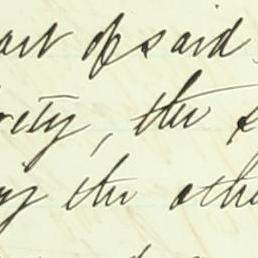 art of said
ority, the
ng the othe